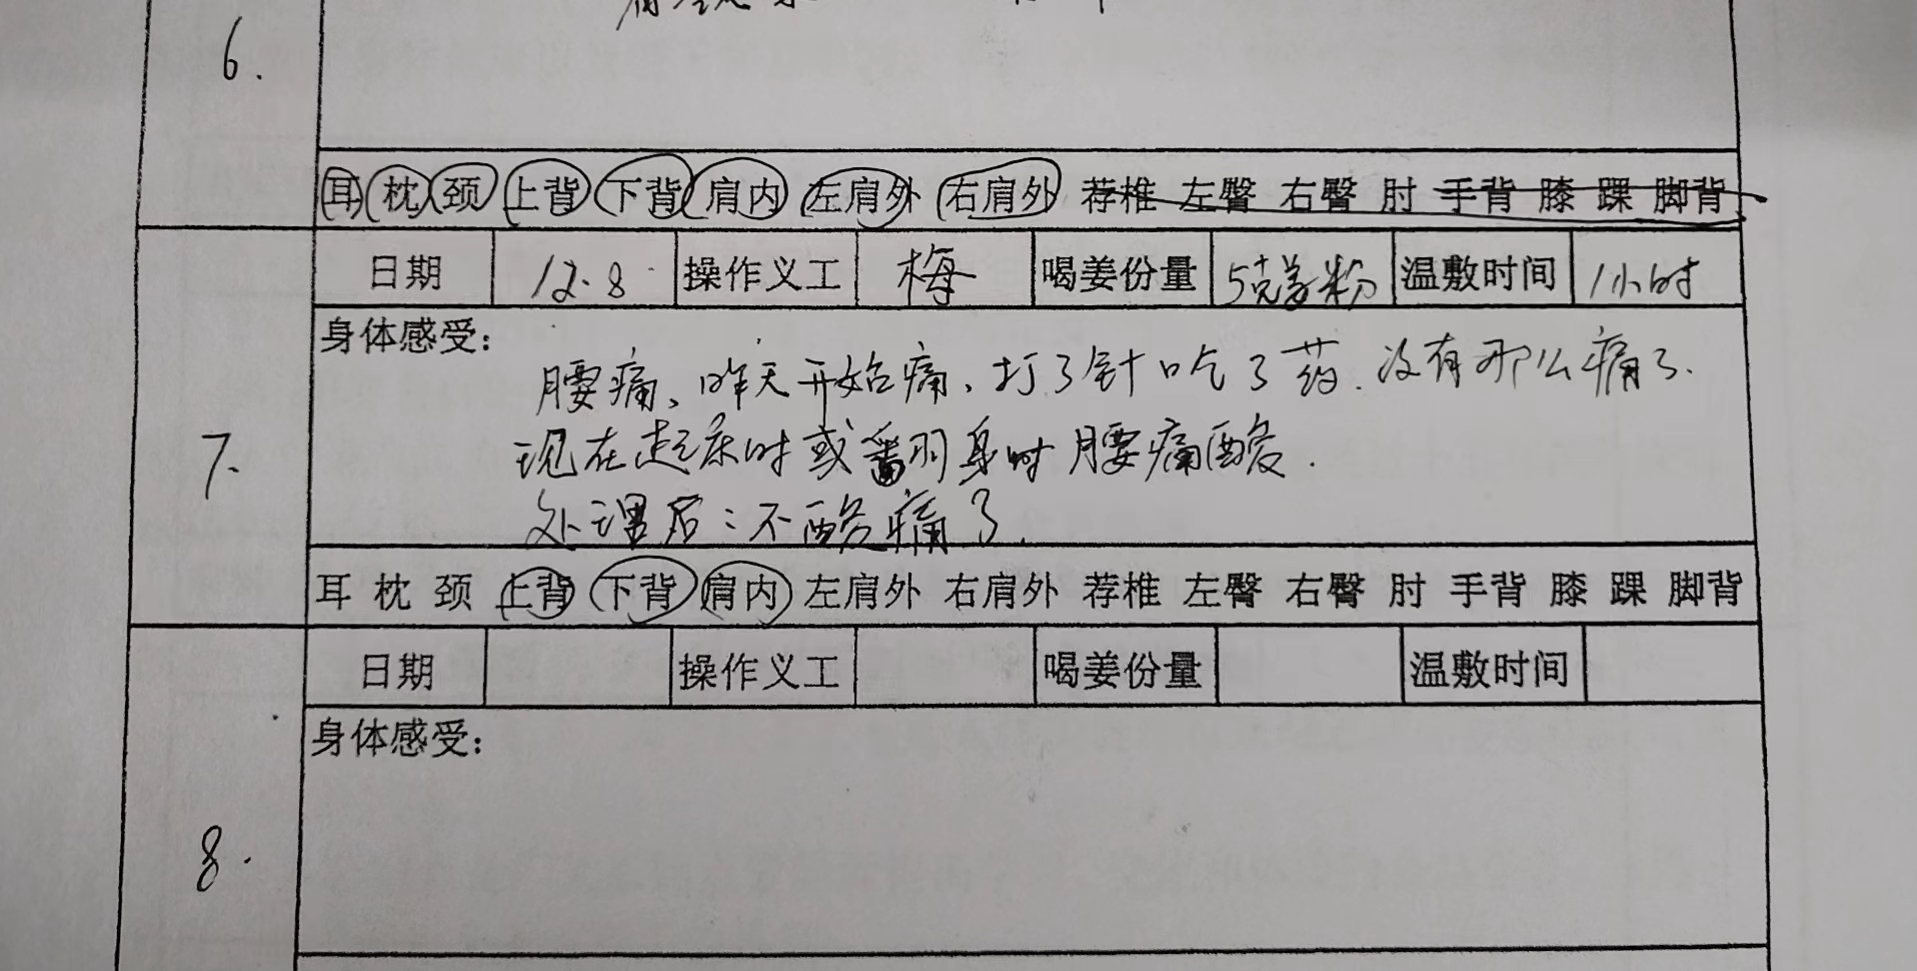 6.
耳 枕 颈 上背 下背 肩内 左肩外 右肩外 荐椎 左臀 右臀 肘 手背 膝 踝 脚背
日期 12.8 操作义工 梅 喝姜份量 5克姜粉 温敷时间 1小时
7.
身体感受:
腰痛、昨天开始痛,打了针吃了药.没有那么痛了.
现在起床时或翻身时腰痛酸.
处理后:不酸痛了.
耳 枕 颈 上背 下背 肩内 左肩外 右肩外 荐椎 左臀 右臀 肘 手背 膝 踝 脚背
日期 操作义工 喝姜份量 温敷时间
身体感受:
8.